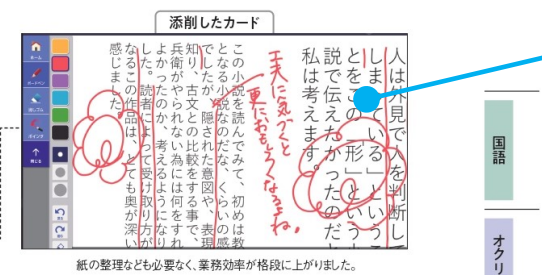 添削したカード
人は外見で人を判断して
しまっている」というこ
とをこの「形」という
説で伝えたかったのだと
私は考えます。
工夫に気づくと
更におもしろくなるよね。
この小説を読んでみて、初めは教
となる小説なのだな、くらいの感
でしたが、隠された意図や、表現
知り、古文との比較をする事で、
兵衛がやられない為には何をすれ
よかったのか、考えるようになり
した。読者によって受け取り方が
なるこの作品は、とても奥が深い
感じました。
ホーム
消しゴム
ポインタ
閉じる
紙の整理なども必要なく、業務効率が格段に上がりました。
国語
オクリ